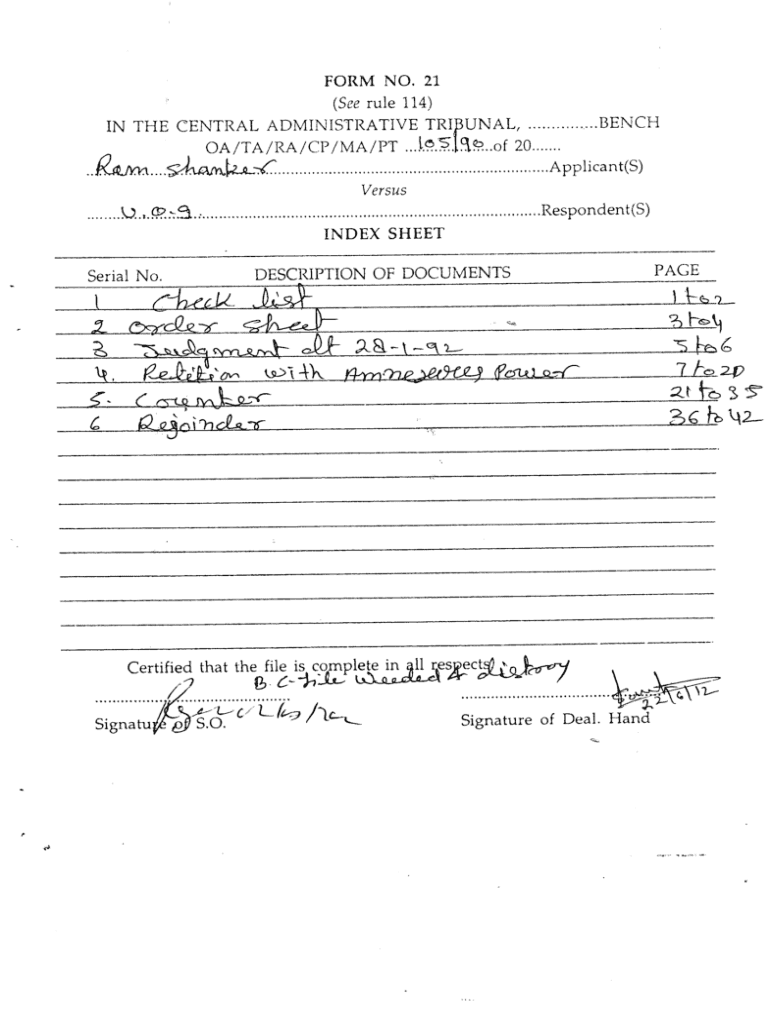 FORM NO. 21
(See rule 114)
IN THE CENTRAL ADMINISTRATIVE TRIBUNAL, ...............BENCH
OA/TA/RA/CP/MA/PT ...105/90...of 20.......
Ram Shanker Applicant(S)
Versus
U.O.I. Respondent(S)
INDEX SHEET
Serial No. DESCRIPTION OF DOCUMENTS PAGE
1 Check list 1 to 2
2 order sheet 3 to 4
3 Judgment dt 28-1-92 5 to 6
4. Petition with Annexures Power 7 to 20
5. Counter 21 to 35
6 Rejoinder 36 to 42
Certified that the file is complete in all respects
B.C-file weeded & distroy
22/6/12
Signature of S.O. Signature of Deal. Hand